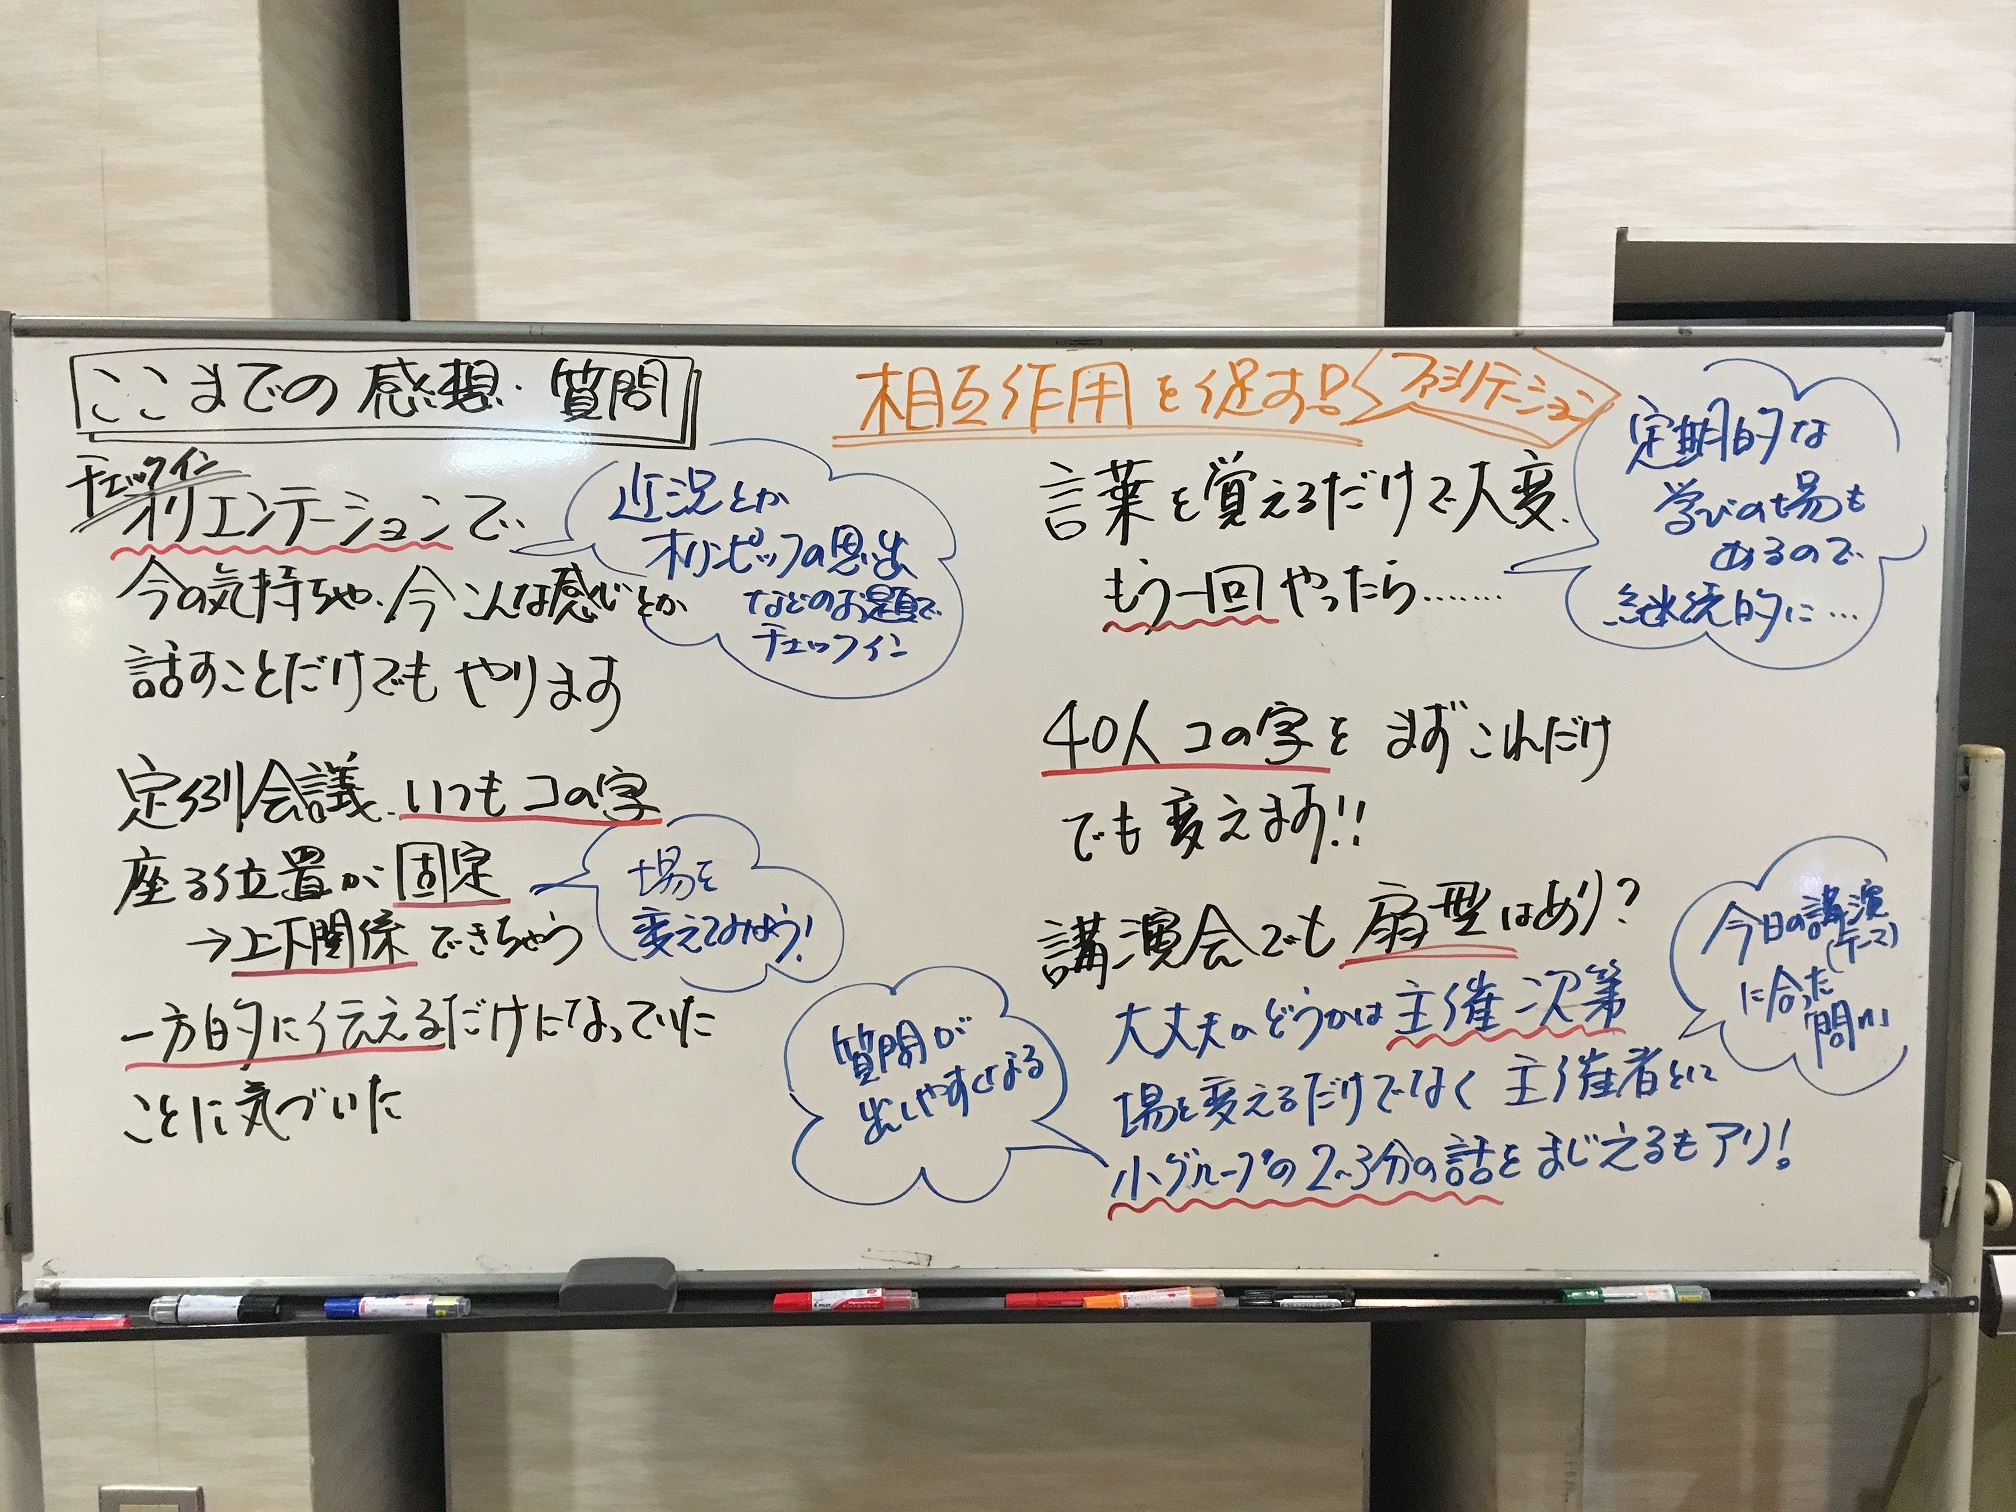 ここまでの 感想・質問
チェックイン
オリエンテーションで、
今の気持ちや、今こんな感じとか
話すことだけでも やります
近況とか
オリンピックの思い出
などのお題で
チェックイン
定例会議、いつもコの字
座る位置が固定
→上下関係できちゃう
場を
変えてみよう!
一方的に伝えるだけになっていた
ことに気づいた
相互作用を促す!
ファシリテーション
言葉を覚えるだけで大変、
もう一回やったら……
定期的な
学びの場も
あるので
継続的に…
40人コの字を まずこれだけ
でも変えます!!
講演会でも扇型はあり?
大丈夫かどうかは主催次第
場を変えるだけでなく 主催者と
小グループの2~3分の話をまじえるもアリ!
質問が
出しやすくなる
今日の講演
(テーマ)
に合った
問い